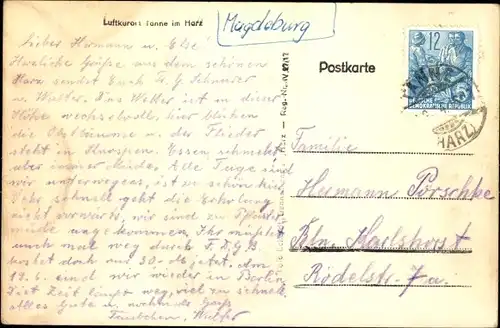 Luftkurort Tanne im Harz
Magdeburg
Postkarte
12
DEMOKRATISCHE REPUBLIK
HARZ
Liebes Hermann u. Else!
Herzliche Grüße aus dem schönen
Harz sendet Euch Fr. G.
u. Walter. Das Wetter ist in dieser
Höhe wechselvoll, hier blühen
die Obstbäume u. der Flieder
steht in Knospen. Essen schmeckt
aber immer Alle Tage sind
wir unterwegens, ist so schön hier.
Sehr schnell geht die Erholung
nicht vorwärts, wir sind zu
müde angekommen. Ihr müßtet
auch mal weg durch F.D.G.B.
kostet doch nur 30.-M jetzt. Am
19.6. sind wir wieder in Berlin.
Die Zeit läuft weg, viel zu schnell.
Alles Gute u. nochmals Gruß
Walter
Familie
Hermann Porschke
Bln. Karlshorst
Rödelstr. 7a.